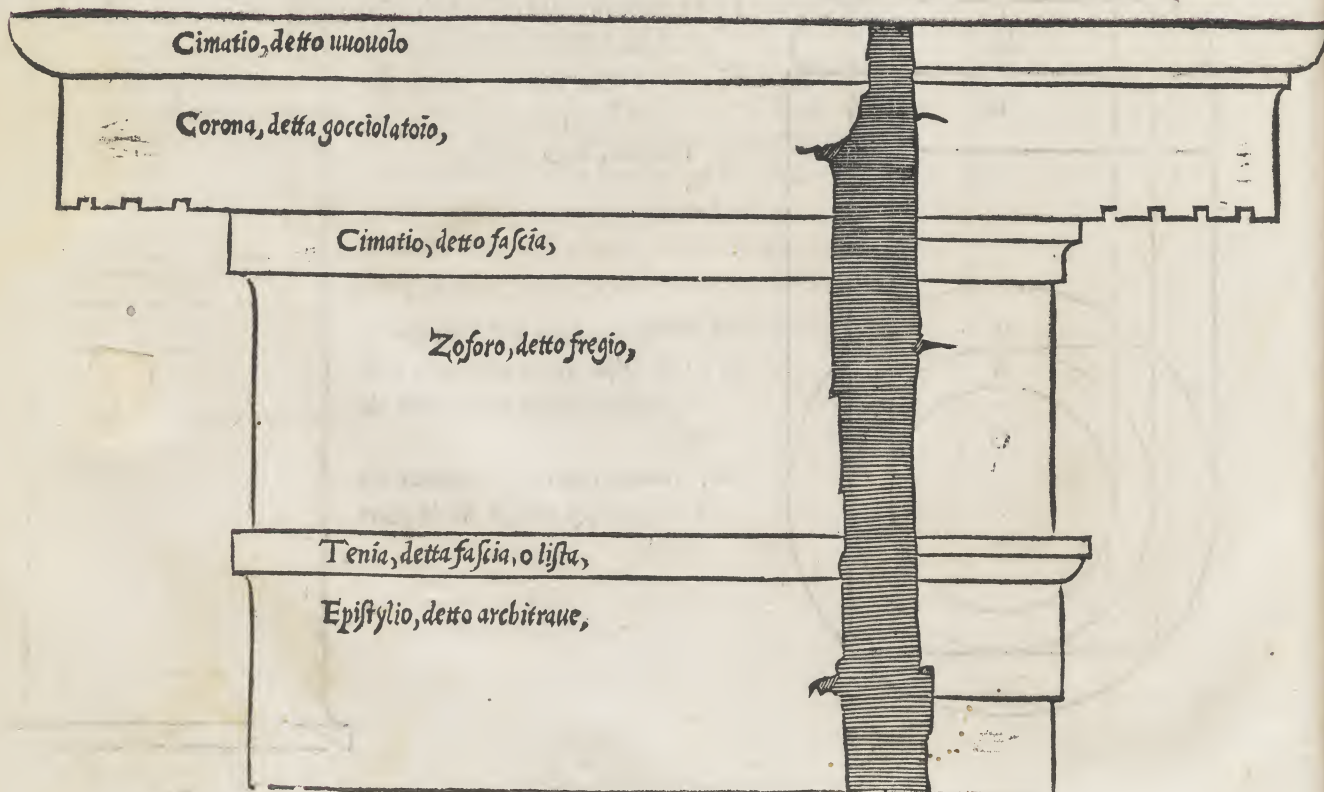 Cimatio, detto uuouolo
Corona, detta gocciolatoio,
Cimatio, detto faſcia,
Zoforo, detto fregio,
Tenia, detta faſcia, o liſta,
Epiſtylio, detto architraue,